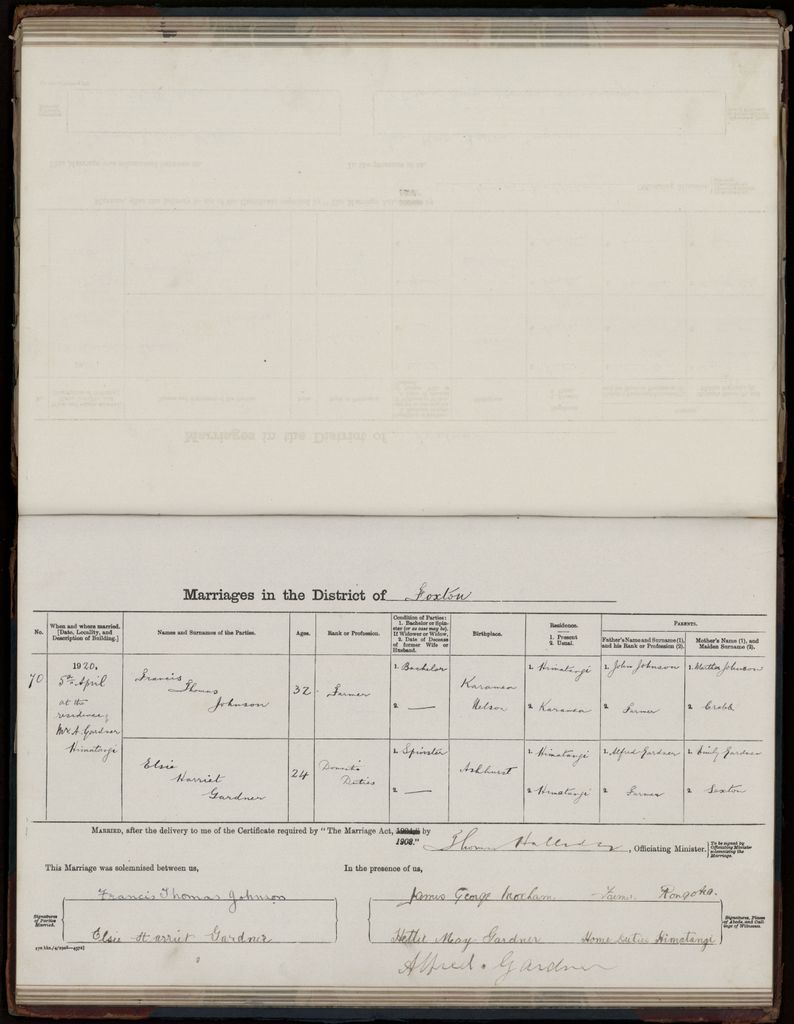 Marriages in the District of Foxton
No.
When and where married.
[Date, Locality, and
Description of Building.]
Names and Surnames of the Parties.
Ages.
Rank or Profession.
Condition of Parties:
1. Bachelor or Spin-
ster (or as case may be).
If Widower or Widow,
2. Date of Decease
of former Wife or
Husband.
Birthplace.
Residence.
1. Present
2. Usual.
PARENTS.
Father's Name and Surname (1),
and his Rank or Profession (2).
Mother's Name (1), and
Maiden Surname (2).
70
1920.
5th April
at the
residence,
Mr A. Gardner
Himatangi
Francis
Thomas
Johnson
32
Farmer
1. Bachelor
2. —
Karamea
Nelson
1. Himatangi
2. Karamea
1. John Johnson
2. Farmer
1. Martha Johnson
2. Crabb
Elsie
Harriet
Gardner
24
Domestic
Duties
1. Spinster
2. —
Ashhurst
1. Himatangi
2. Himatangi
1. Alfred Gardner
2. Farmer
1. Emily Gardner
2. Saxton
MARRIED, after the delivery to me of the Certificate required by "The Marriage Act, by
1908."
Thomas Halliday, Officiating Minister.
To be signed by
Officiating Minister
solemnizing the
Marriage.
This Marriage was solemnised between us,
In the presence of us,
Signatures
of Parties
Married.
Francis Thomas Johnson
Elsie Harriet Gardner
James George Farmer Rongotea.
Hettie May Gardner Home Duties Himatangi
Alfred. Gardner
Signatures, Places
of Abode, and Call-
ings of Witnesses.